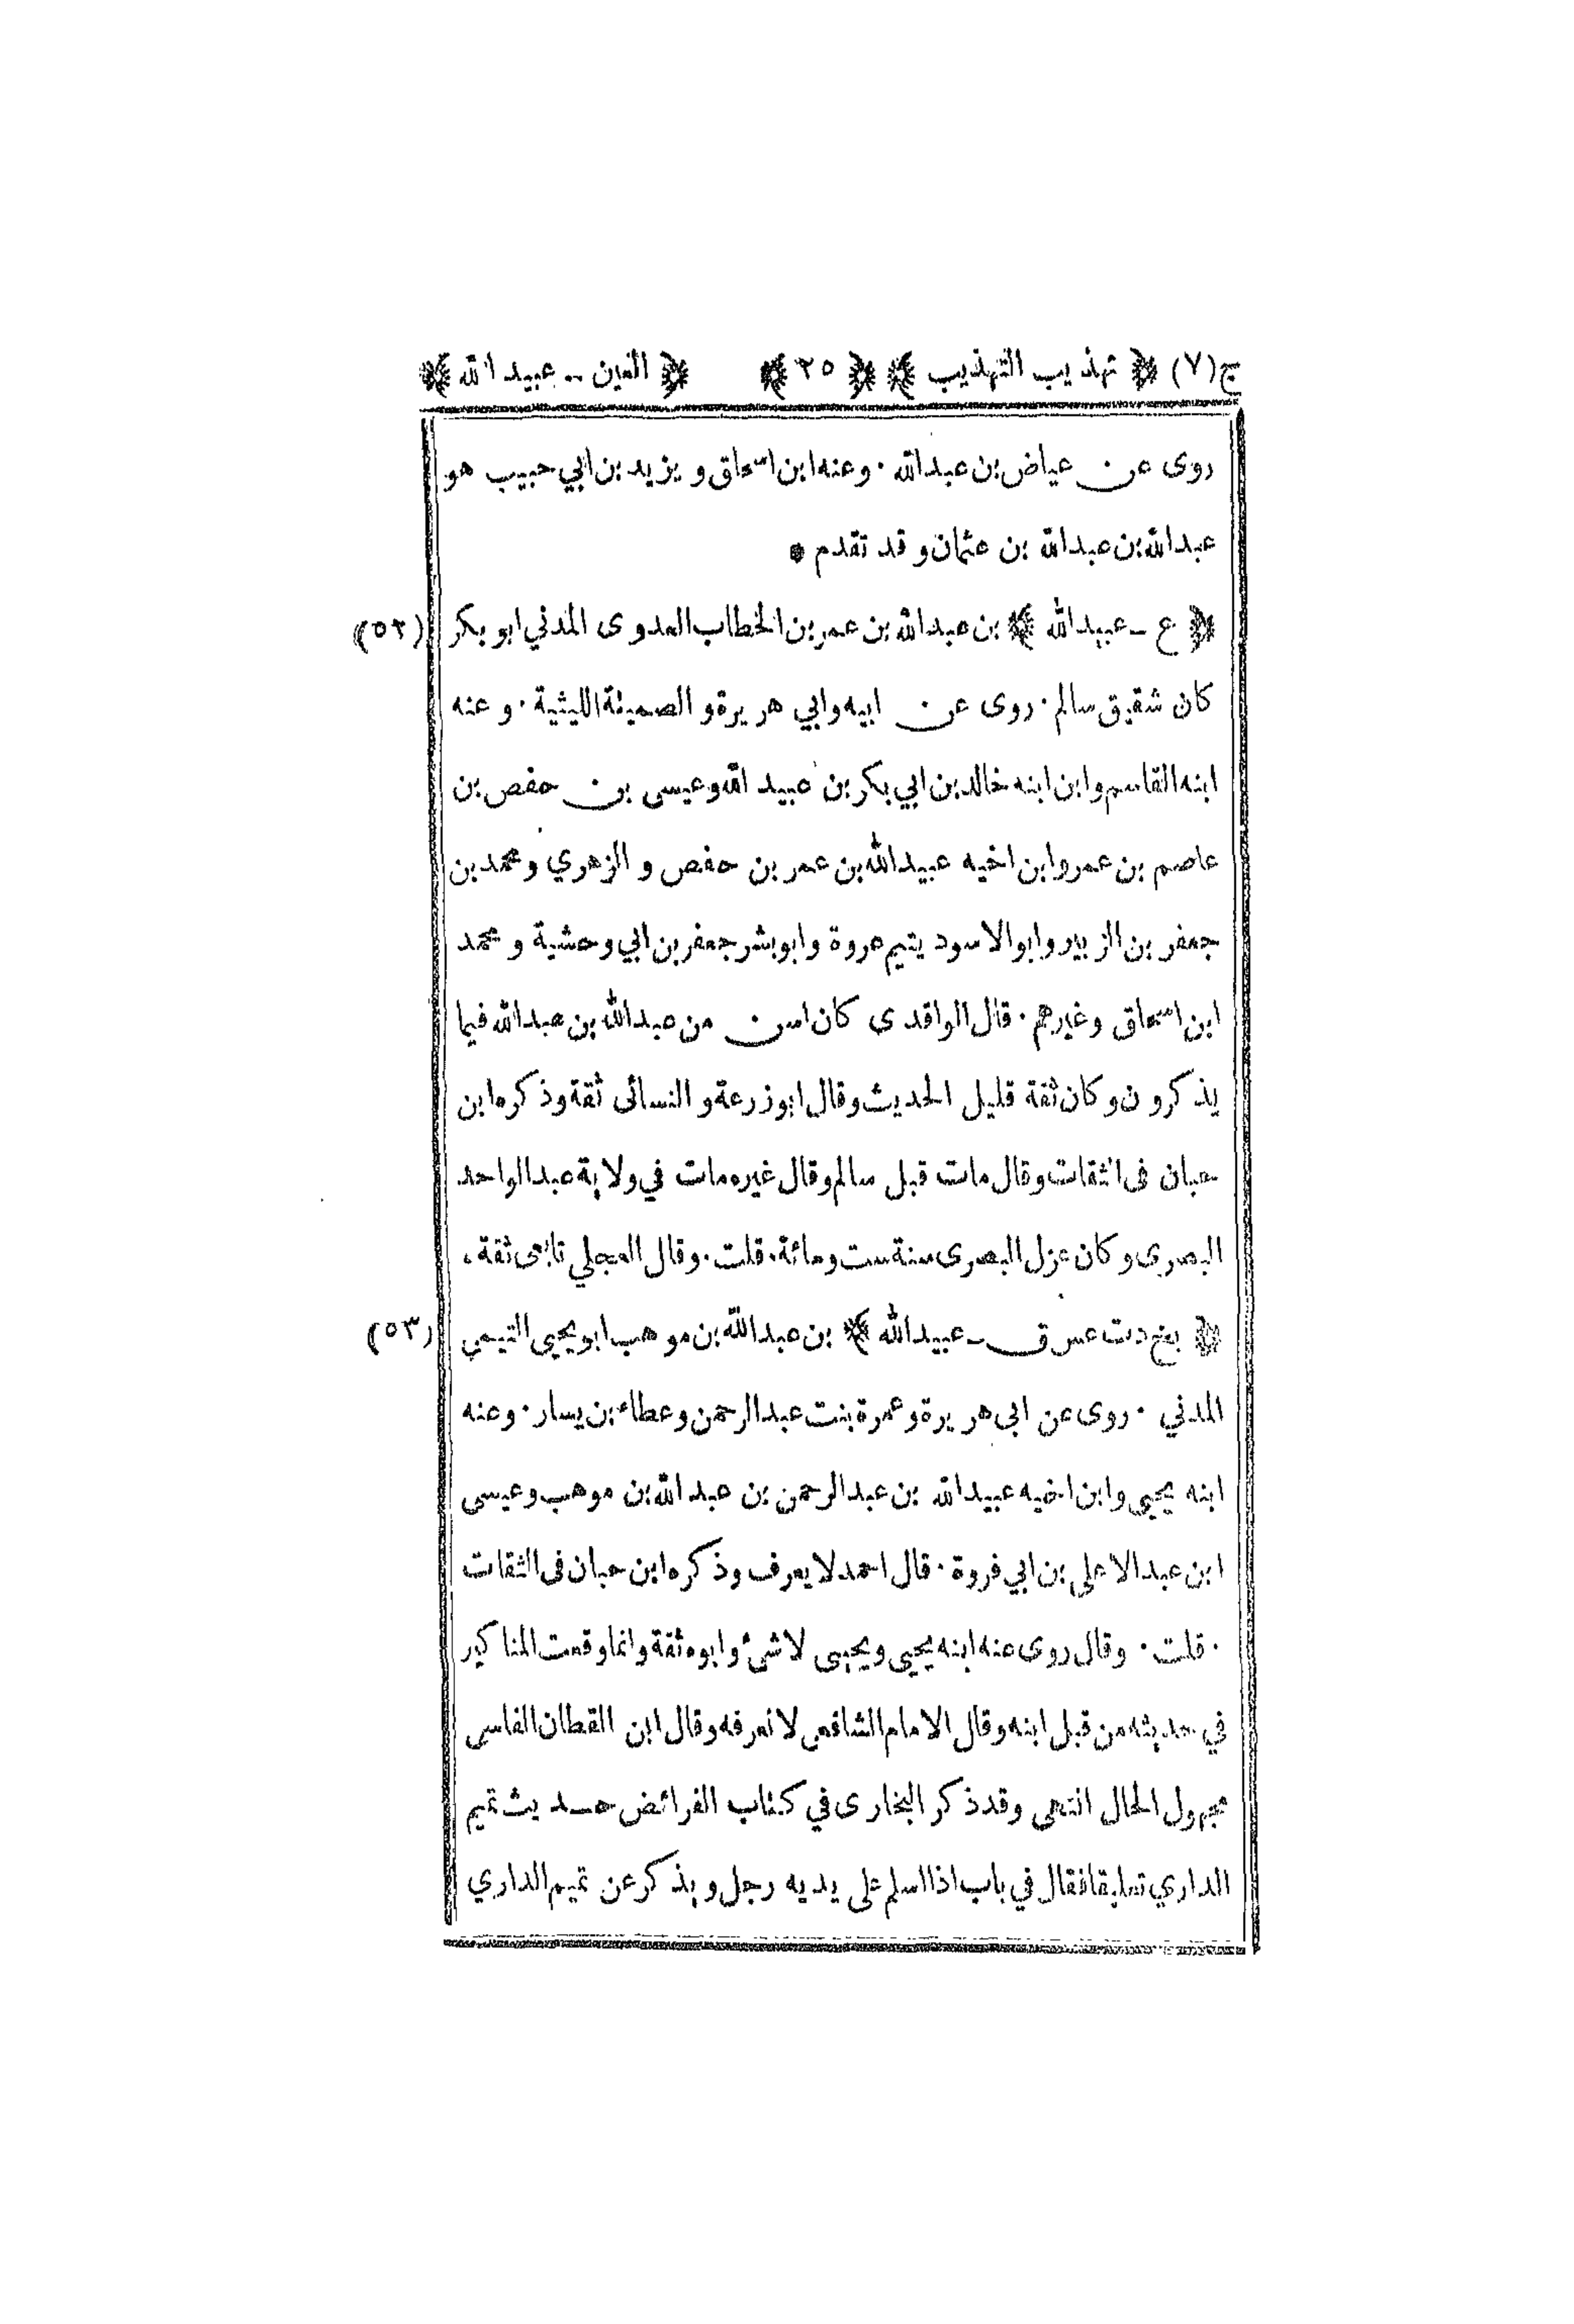 ج(٧) ﴿ تهذيب التهذيب ﴾ ﴿ ٢٥ ﴾ ﴿ العين - عبيد الله ﴾
روى عن عياض بن عبدالله · وعنه ابن اسحاق ويزيد بن ابي حبيب هو
عبدالله بن عبدالله بن عثمان وقد تقدم *
﴿ ع - عبيدالله ﴾ بن عبدالله بن عمر بن الخطاب العدوى المدني ابو بكر (٥٢)
كان شقيق سالم · روى عن ابيه وابي هريرة والصميتة الليثية · وعنه
ابنه القاسم وابن ابنه خالد بن ابي بكر بن عبيد الله وعيسى بن حفص بن
عاصم بن عمر وابن اخيه عبيد الله بن عمر بن حفص والزهري ومحمد بن
جعفر بن الزبير وابو الاسود يتيم عروة وابو بشر جعفر بن ابي وحشية ومحمد
ابن اسحاق وغيرهم · قال الواقدى كان اسن من عبدالله بن عبدالله فيما
يذكرون وكان ثقة قليل الحديث وقال ابو زرعة والنسائى ثقة وذكره ابن
حبان فى الثقات وقال مات قبل سالم وقال غيره مات في ولاية عبد الواحد
البصرى وكان عزل البصرى سنة ست ومائة · قلت · وقال العجلي تابعى ثقة ،
﴿ بخ د ت عس ق - عبيدالله ﴾ بن عبدالله بن موهب ابو يحيى التيمي (٥٣)
المدني · روى عن ابى هريرة وعمرة بنت عبدالرحمن وعطاء بن يسار · وعنه
ابنه يحيى وابن اخيه عبيدالله بن عبدالرحمن بن عبد الله بن موهب وعيسى
ابن عبد الاعلى بن ابي فروة · قال احمد لا يعرف وذكره ابن حبان فى الثقات
· قلت · وقال روى عنه ابنه يحيى ويحيى لا شئ وابوه ثقة وانما وقعت المناكير
في حديثه من قبل ابنه وقال الامام الشافعى لا نعرفه وقال ابن القطان الفاسى
مجهول الحال انتهى وقد ذكر البخارى في كتاب الفرائض حديث تميم
الداري تعليقا فقال في باب اذا اسلم على يديه رجل ويذكر عن تميم الداري